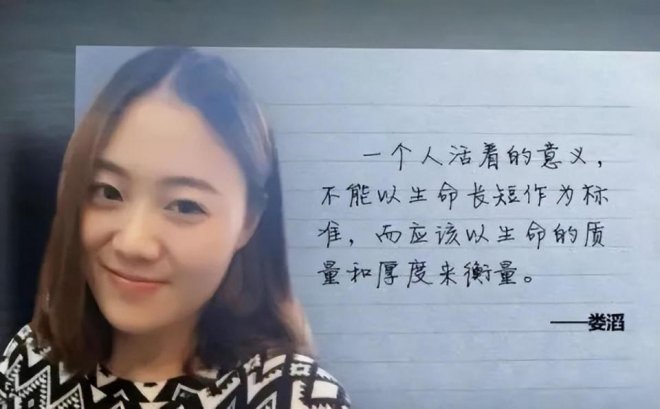 一个人活着的意义，
不能以生命长短作为标
准，而应该以生命的质
量和厚度来衡量。
——娄滔